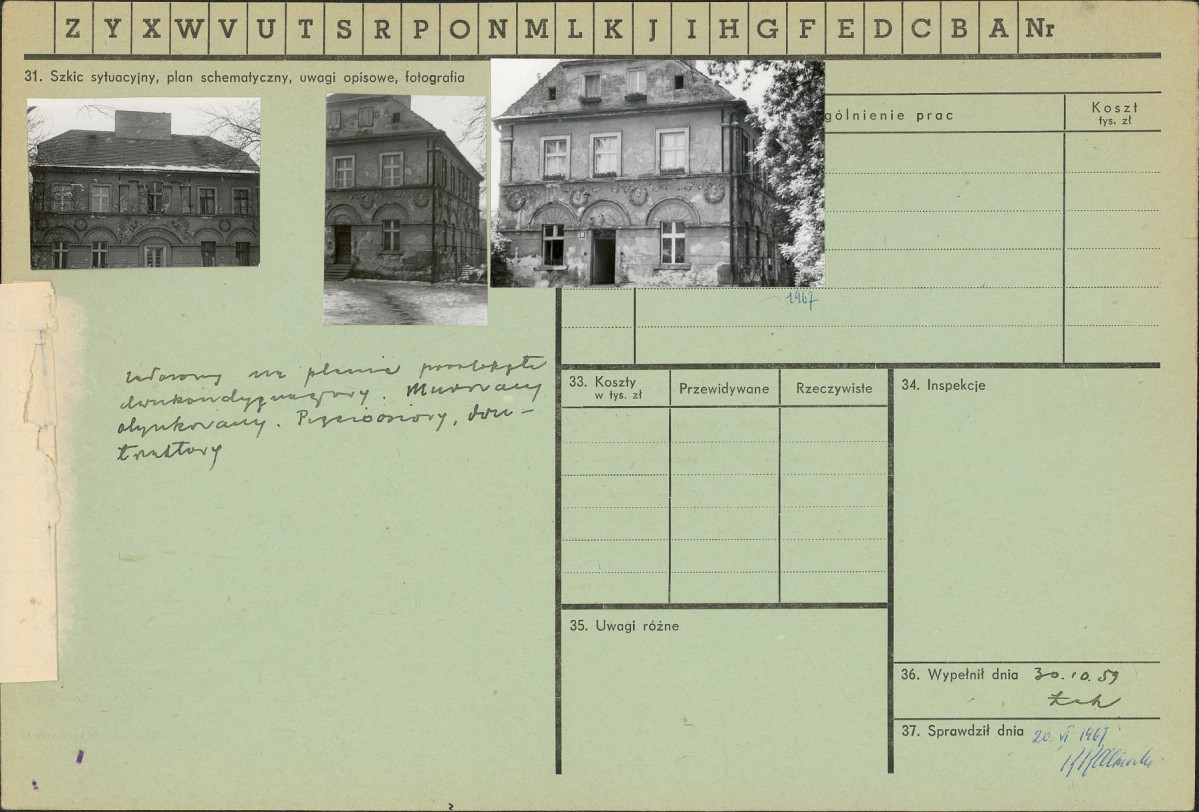 Z Y X W V U T S R P O N M L K J I H G F E D C B A Nr
31. Szkic sytuacyjny, plan schematyczny, uwagi opisowe, fotografia
gólnienie prac
Koszt
tys. zł
1967
na planie
dwukondygnacyjny. Murowany
otynkowany. Pięcioosiowy, dwu-
traktowy
33. Koszty
w tys. zł
Przewidywane
Rzeczywiste
34. Inspekcje
35. Uwagi różne
36. Wypełnił dnia 30.10.59
37. Sprawdził dnia 20. VI 1967